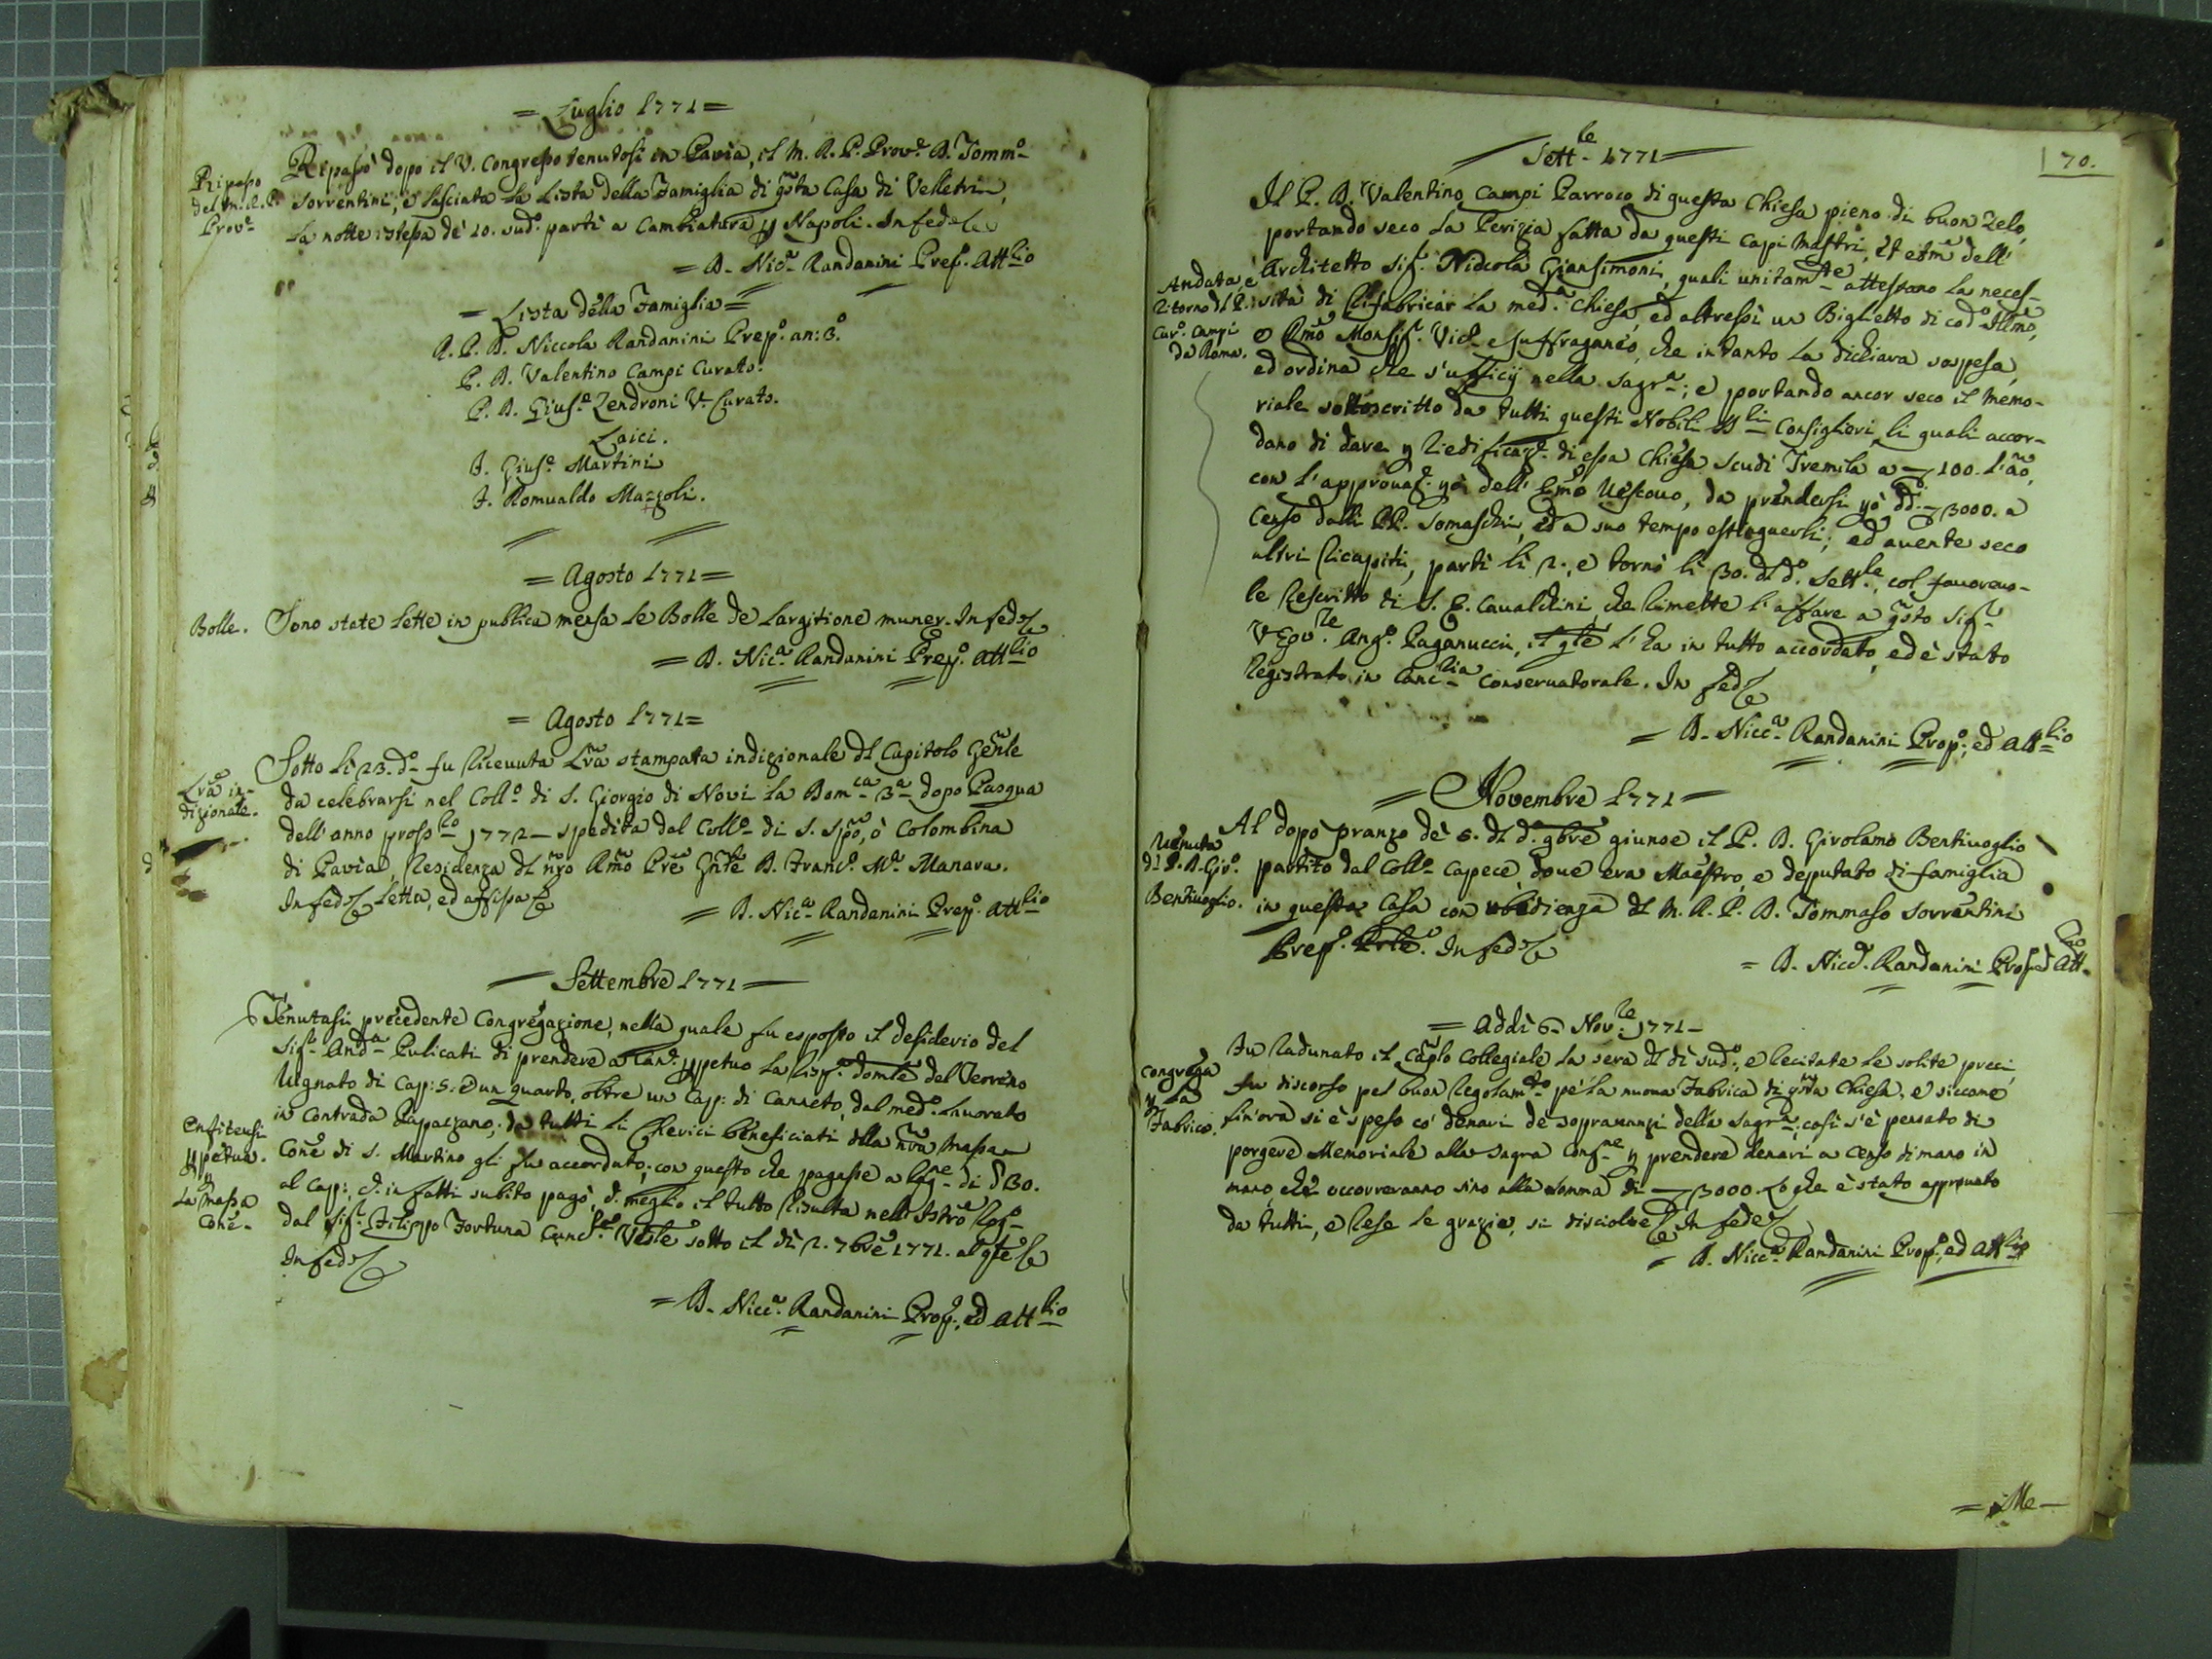 = Luglio 1771 =
Ripasso
del M. R. P.
Prov.e
Ripassò dopo il V. Congresso tenutosi in Pavia, il M. R. P. Prov.e D. Tomm.o
Sorrentini, e lasciata la Lista della Famiglia di q̃sta Casa di Velletri,
la notte istessa de' 10. sud.o partì a Cambiatura p Napoli. In fede
= D. Nic.a Randanini Prep. Att.rio
= Lista della Famiglia =
R. P. D. Niccola Randanini Prep.o an: 3.o
P. D. Valentino Campi Curato.
P. D. Gius.e Zendroni V. Curato.
Laici.
F. Gius.e Martini
F. Romualdo Mazzoli.
= Agosto 1771 =
Bolle.
Sono state lette in publica mensa le Bolle de Largitione muner. In fede
= D. Nic.a Randanini Prep.o Att.rio
= Agosto 1771 =
Lr̃a in-
dizionale.
Sotto li 23. d.o fu ricevuta Lr̃a stampata indizionale dl Capitolo Gen̄le
da celebrarsi nel Coll.o di S. Giorgio di Novi la Dom.ca 3.a dopo Pasqua
dell'anno pross.o 1772 spedita dal Coll.o di S. Sp̃o, ò Colombina
di Pavia, Residenza dl nr̃o Rm̃o Pr̃e Gn̄le D. Franc.o M.a Manara.
In fede letta, ed affissa
= D. Nic.a Randanini Prep.o Att.rio
Settembre 1771
Enfiteusi
ppetua.
p
La Massa
Com̃e.
Tenutasi precedente Congregazione, nella quale fu esposto il desiderio del
Sig.r And.a Pulicati di prendere a Can.e ppetuo la risp.a domĩe del Terreno
Vignato di Cap: 5. e un quarto, oltre un Cap: di Canneto, dal med.o lavorato
in Contrada Rapazzano, da tutti li Cherici beneficiati della nr̃a Massa
Com̃e di S. Martino gli fu accordato, con questo che pagasse a
al Cap:, c. in fatti subito pagò, c. meglio il tutto risulta nell' Istro
dal Sig.r Filippo Fortuna Canc.re sotto il dì 2. 7bre 1771. al q̃le
In fede
= D. Nicc.a Randanini Prop.o, ed Att.rio
70.
Sett.re 1771
Andata, e
ritorno dl P.
Cur.o Campi
da Roma.
Il P. D. Valentino Campi Parroco di questa Chiesa pieno di buon zelo,
portando seco la Perizia fatta da questi Capi Mastri, et etm̃ dell'
Architetto Sig.r Niccola Giansimoni, quali unitam.te attestano la neces-
sità di rifabricar la med.a Chiesa, ed altresì un Biglietto di cod.o Ill̃mo,
e Rm̃o Monsig.r Vic.o e suffraganeo, che intanto la dichiara sospesa,
ed ordina che s'ufficij nella Sagr.a; e portando ancor seco il Memo-
riale sottoscritto da tutti questi Nobili SS.ri Consiglieri, li quali accor-
dano di dare p riedificaz.e di essa Chiesa scudi Tremila a 100. l'ãno,
con l'approvaz.e però dell' Em̃o Vescovo, da prendersi però dd.i 3000. a
Censo dalli PP. Somaschi, ed a suo tempo estinguerli; ed avente seco
altri ricapiti, partì li 2., e tornò li 30. dl d.o Sett.re, col favorevo-
le Rescritto di S. E. Cavalchini, che rimette l'affare a q̃sto Sig.r
V. Gov.re Ang.o Paganucci, il q̃le l'ha in tutto accordato, ed è stato
registrato in Canc.ria Conservatorale. In fede
= D. Nicc.a Randanini Prop.o, ed Att.rio
= Novembre 1771 =
Venuta
dl P. D. Gir.o
Bentivoglio.
Al dopo pranzo de' 5. dl d.o 9bre giunse il P. D. Girolamo Bentivoglio
partito dal Coll.o Capece, dove era Maestro, e deputato di famiglia
in questa Casa con ubidienza dl M. R. P. D. Tommaso Sorrentini
Prep. Prle. In fede
= D. Nicc.a Randanini Prop. ed Att.rio
= Addì 6. Nov.re 1771 =
Congrega
p la
Fabrica.
Fu radunato il Cap̃lo Collegiale la sera dl dì sud.o, e recitate le solite preci,
fu discorso pel buon regolam.to pe' la nuova Fabrica di q̃sta Chiesa, e siccome
fin'ora si è speso co' denari de' sopravanzi della Sagr.a; così s'è pensato di
porgere Memoriale alla Sagra Cong.ne p prendere denari a Censo di mano in
mano, che occorreranno sino alla somma di 3000. Lo che è stato approvato
da tutti, e rese le grazie, si disciolse In fede
= D. Nicc.a Randanini Prop.o, ed Att.rio
= Me